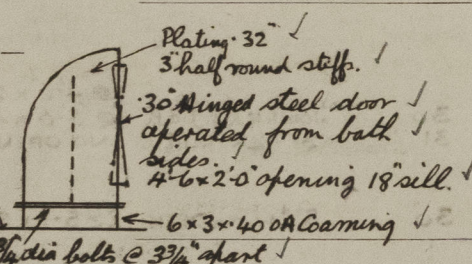 Plating .32"
3" half round stiffs.
.30" Hinged steel door
operated from bath
sides.
4'-6 x 2'-0" opening 18" sill.
6 x 3 x .40 OA Coaming
dia bolts @ 3¾" apart